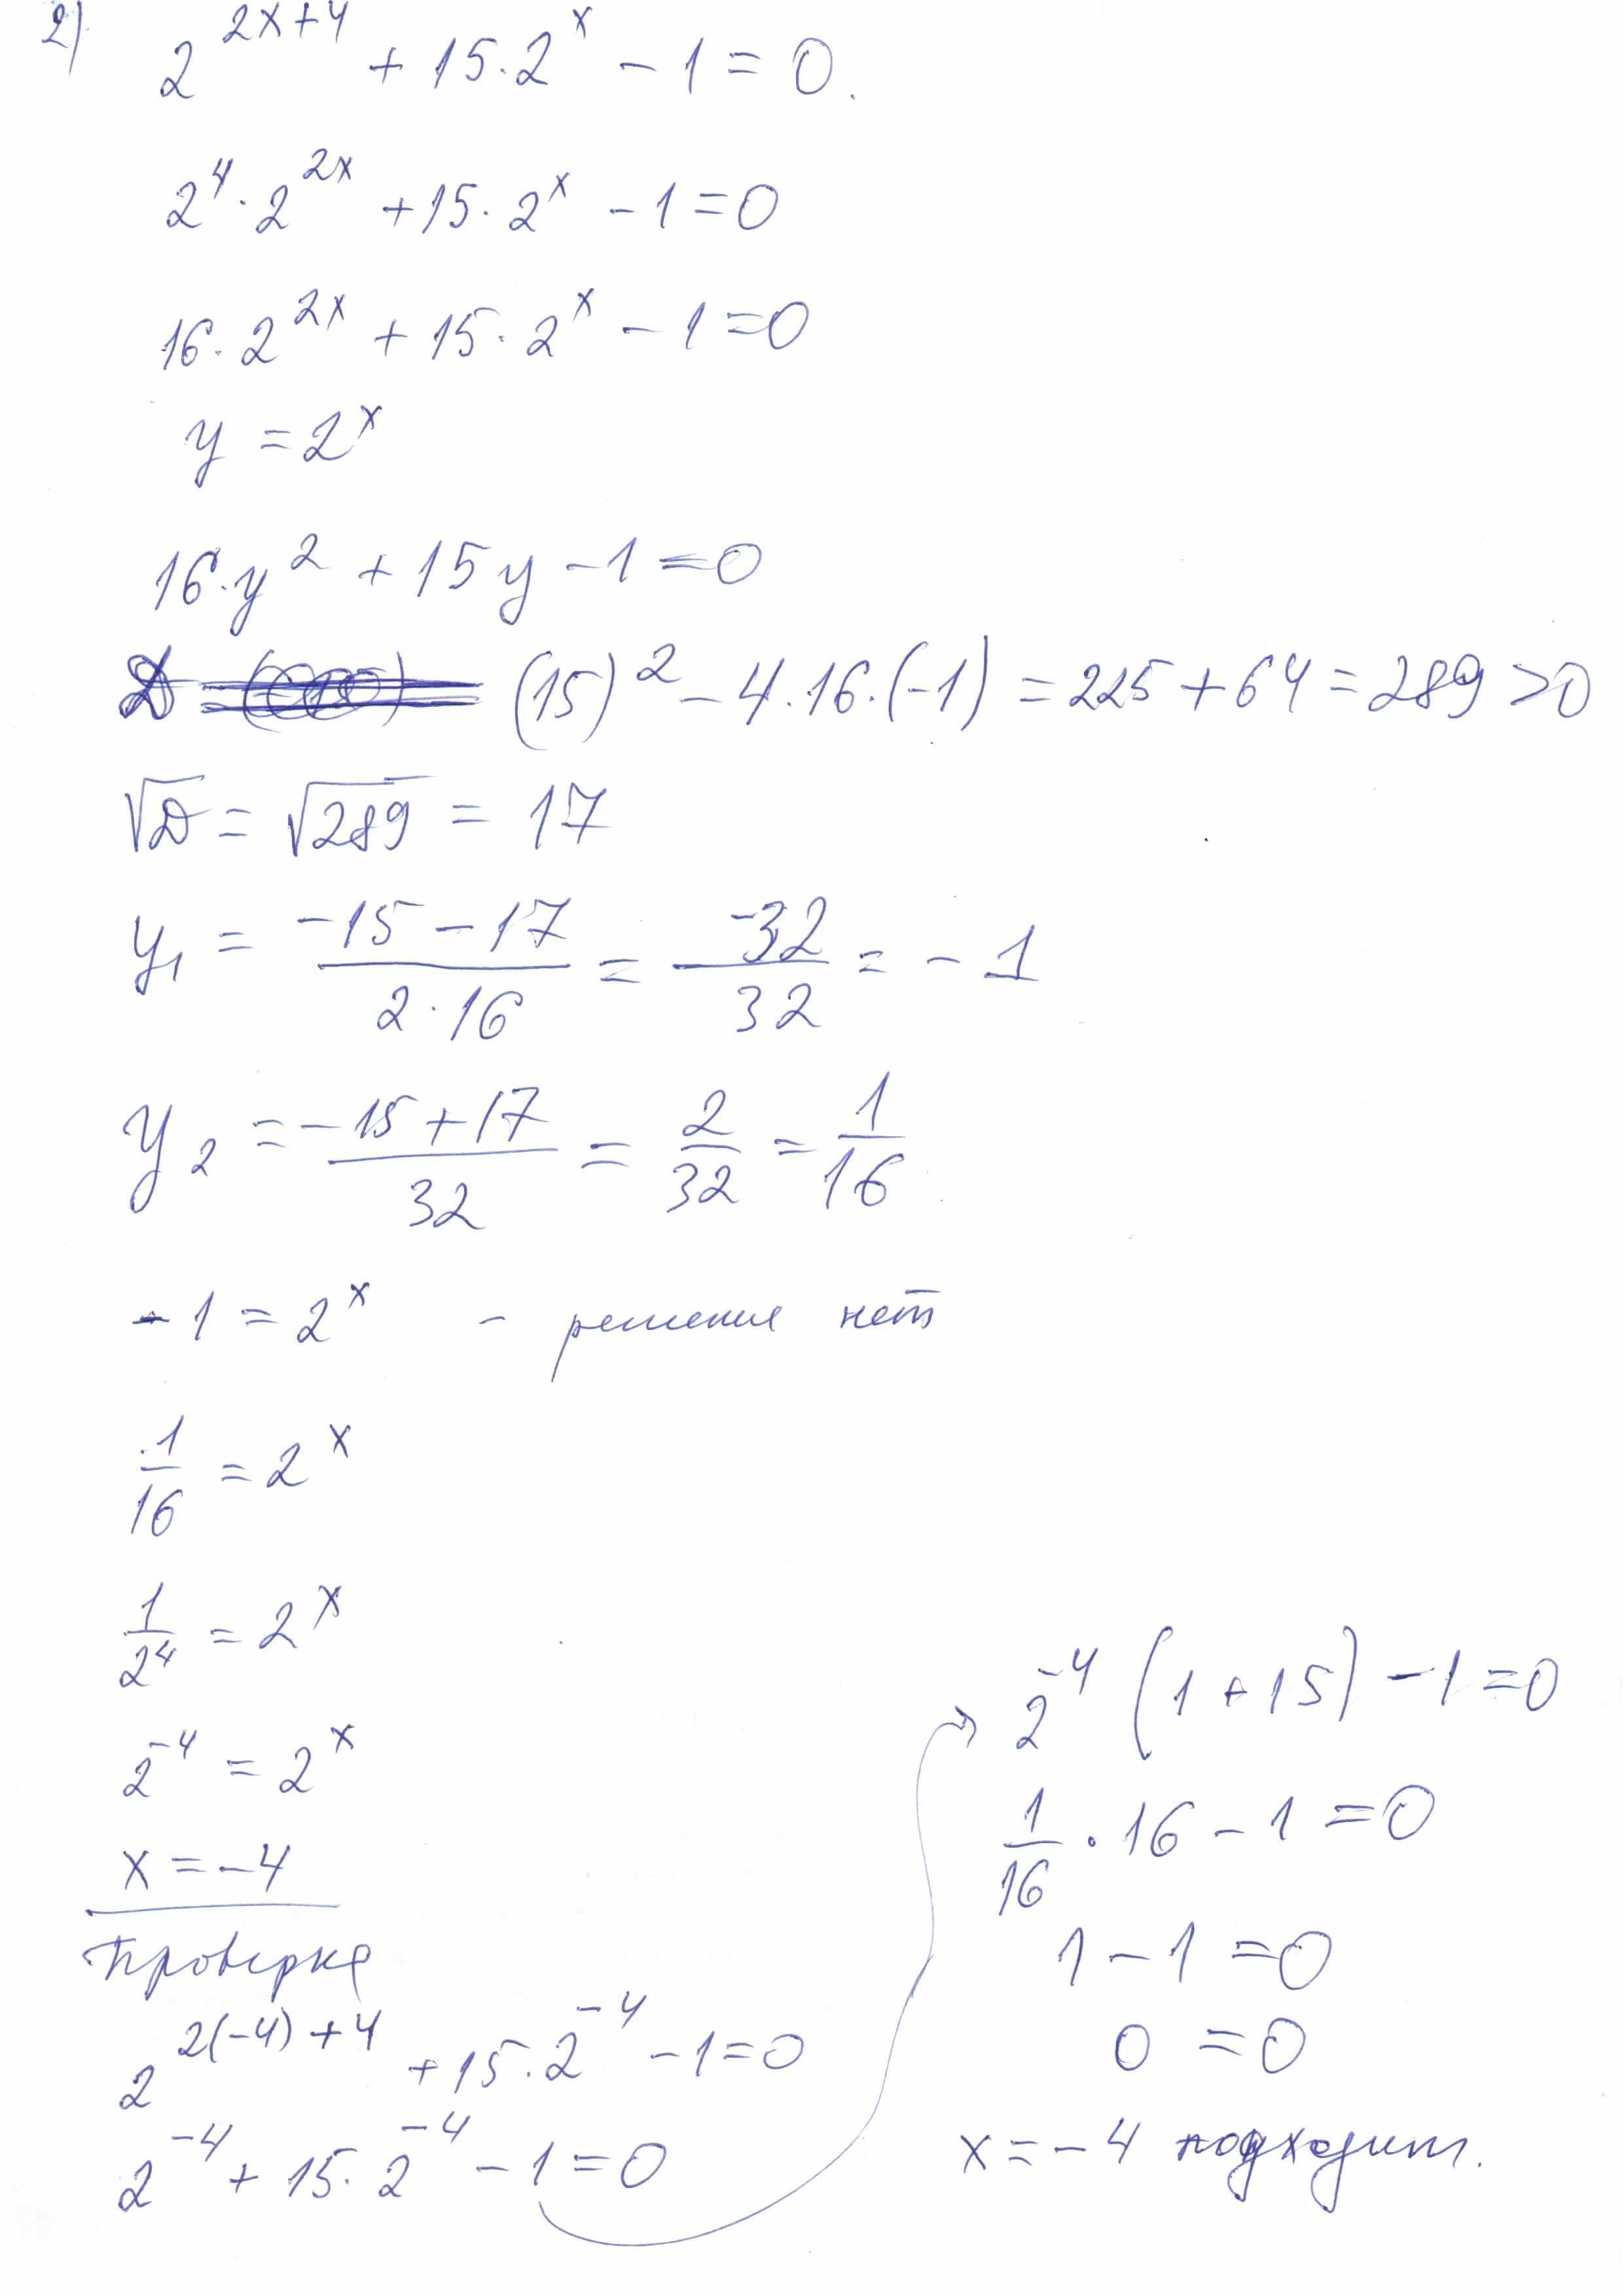 2) 2^{2x+4} + 15·2^x − 1 = 0.
2^4 · 2^{2x} + 15 · 2^x − 1 = 0
16 · 2^{2x} + 15 · 2^x − 1 = 0
y = 2^x
16 · y^2 + 15y − 1 = 0
D = (15)^2 − 4·16·(−1) = 225 + 64 = 289 > 0
√D = √289 = 17
y_1 = \frac{−15 − 17}{2·16} = \frac{−32}{32} = −1
y_2 = \frac{−15 + 17}{32} = \frac{2}{32} = \frac{1}{16}
−1 = 2^x − решения нет
\frac{1}{16} = 2^x
\frac{1}{2^4} = 2^x
2^{−4} = 2^x
x = −4
Проверка
2^{2(−4)+4} + 15·2^{−4} − 1 = 0
2^{−4} + 15·2^{−4} − 1 = 0
→ 2^{−4} (1 + 15) − 1 = 0
\frac{1}{16} · 16 − 1 = 0
1 − 1 = 0
0 = 0
x = −4 подходит.